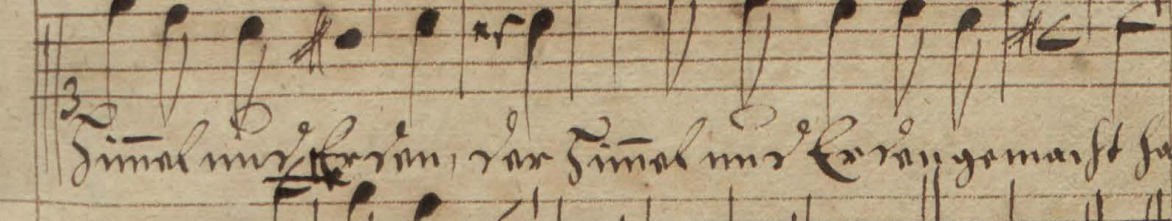 3
Him̅el und Erden, der Him̅el und Erden gemacht ha